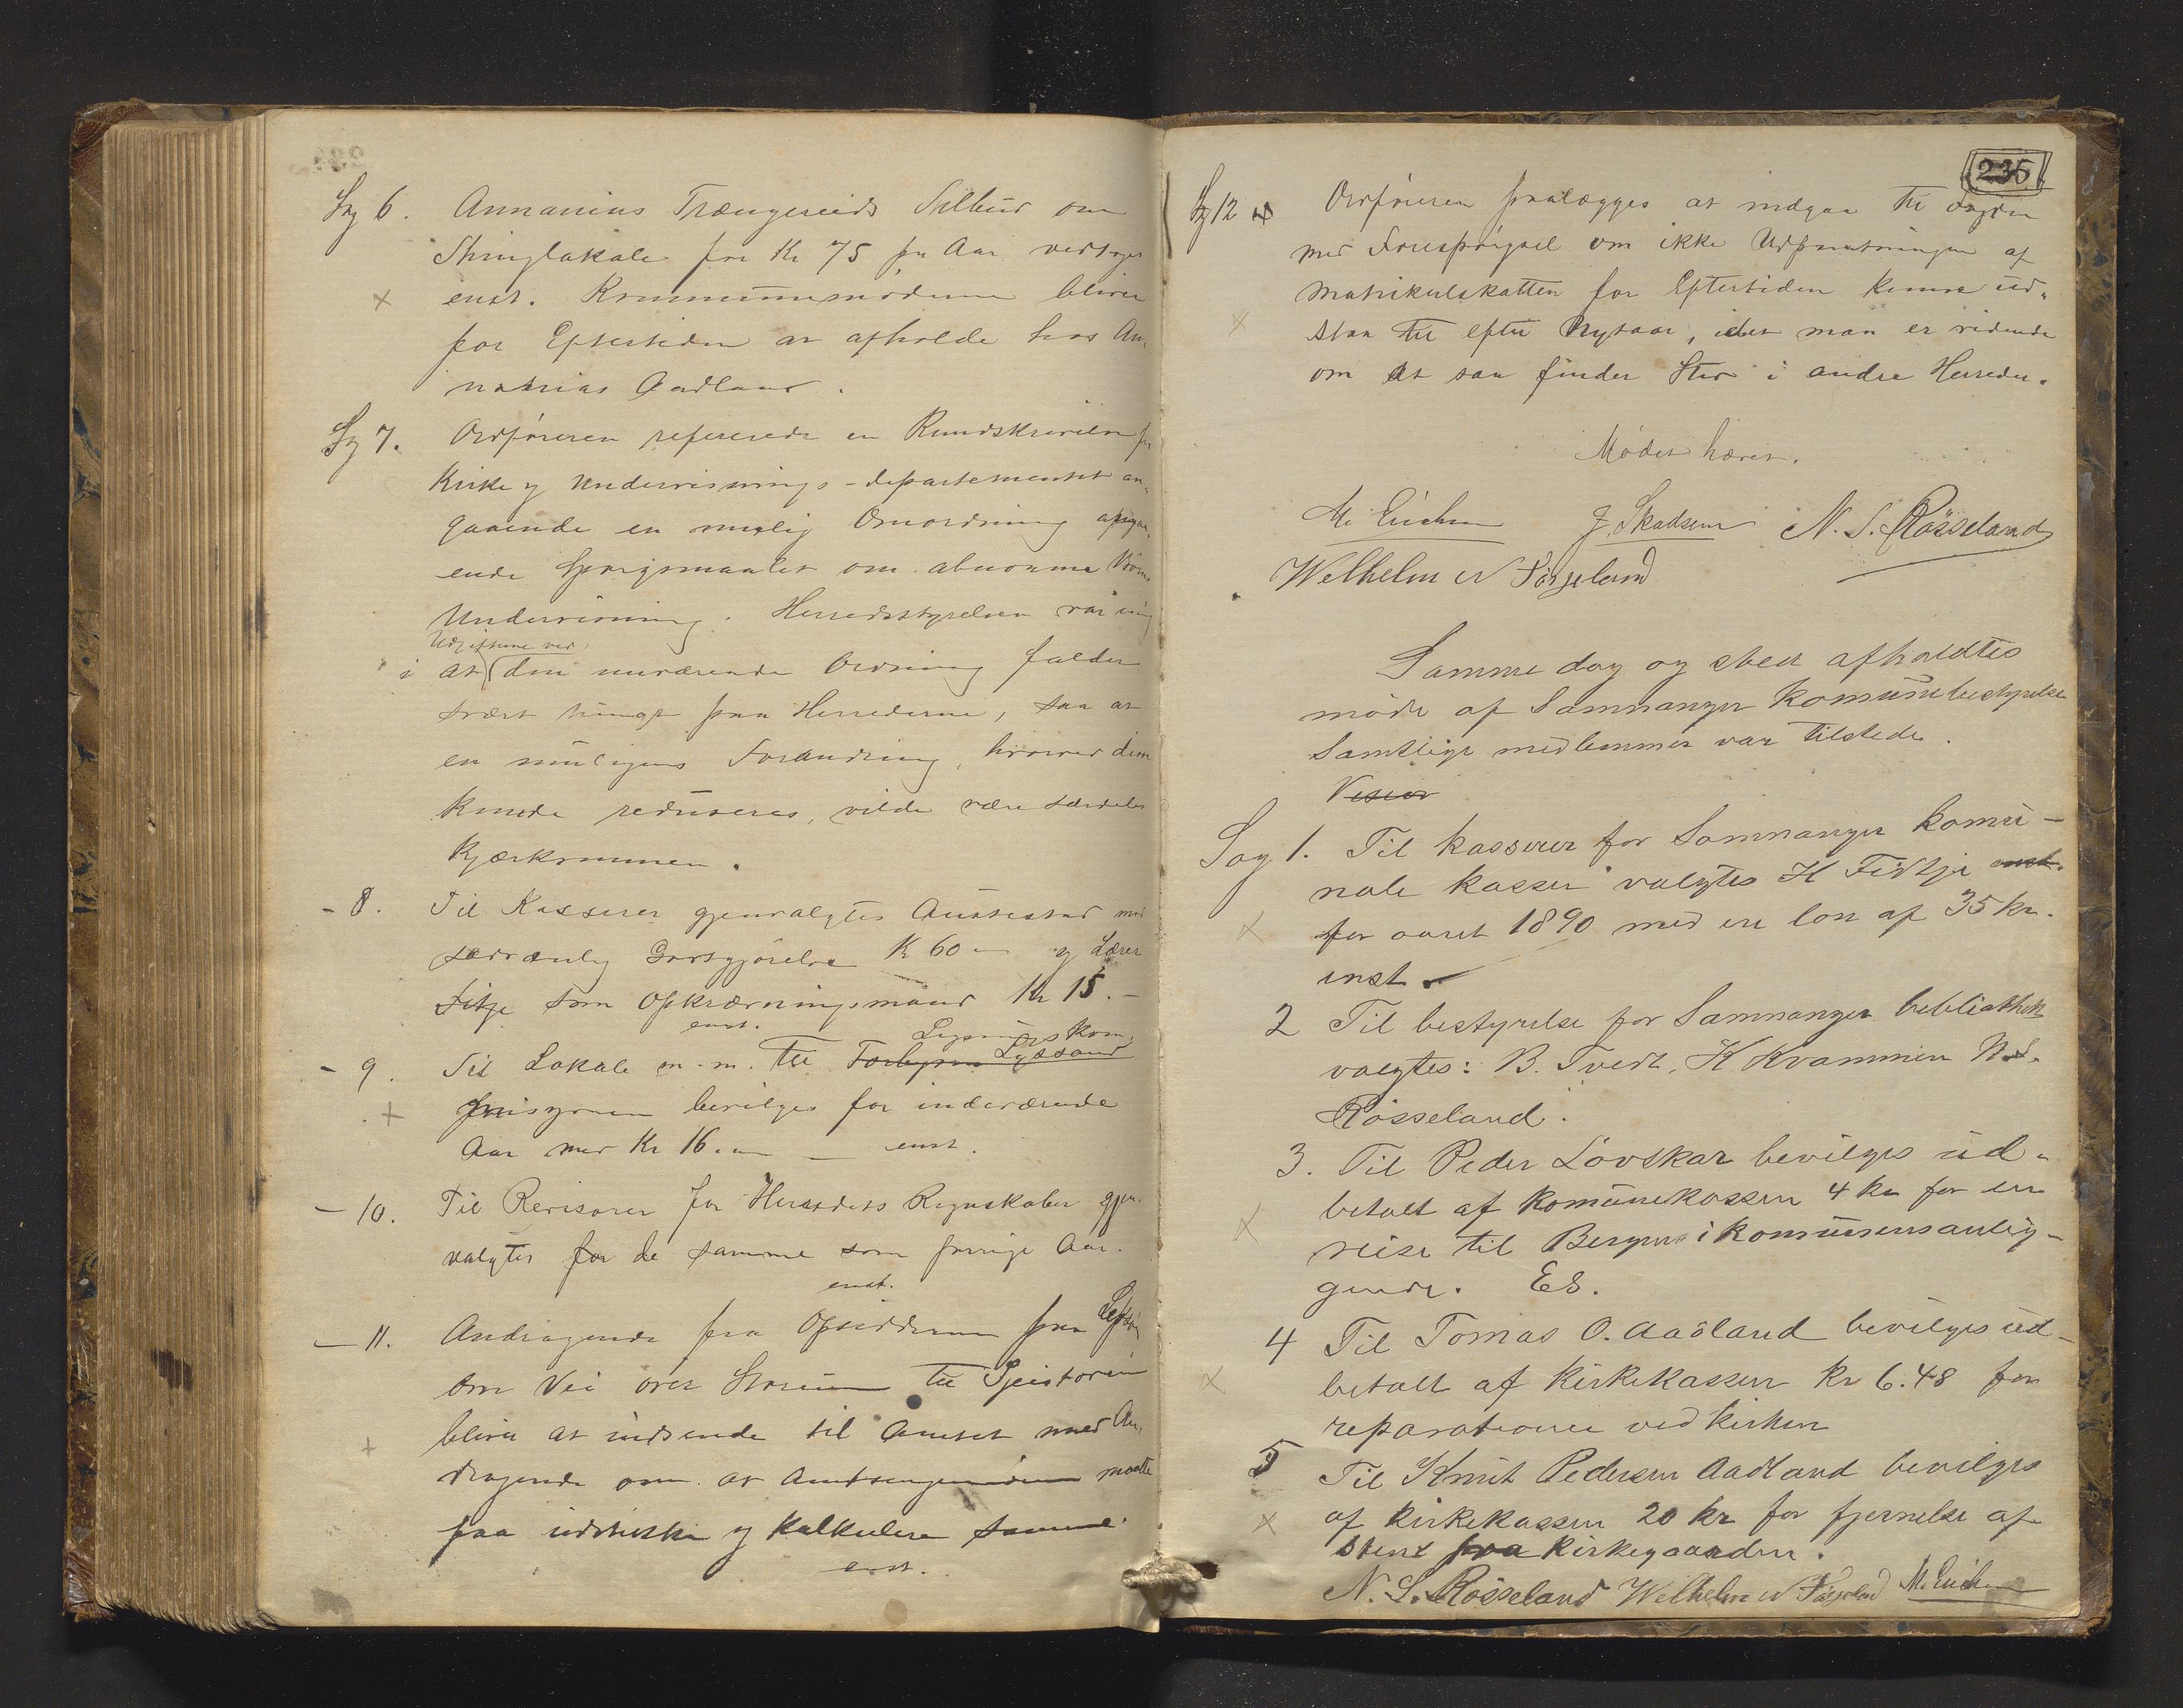 Sag 6. Annanias Trængereids Tilbud om
Thinglokale for Kr 75 pr Aar vedtoges
enst. Kommunemøderne bliver
for Eftertiden at afholde hos An-
nanias Aadland.
Sag 7. Ordføreren refererede en Rundskrivelse fra
Kirke og Undervisnings-departementet an-
gaaende en mulig Omordning angaa-
ende Spørgsmaalet om abnorme Børns
Undervisning. Herredsstyrelsen var enig
Udgifterne ved
i at den nuværende Ordning falder
svært tungt paa Herrederne, saa at
en muligens Forandring, hvorved disse
kunde reduseres, vilde være særdeles
kjærkommen.
- 8. Til Kasserer gjenvalgtes Austestad med
sædvanlig Godtgjørelse K 60 - og Lærer
Fitje som Opkrævningsmand Kr 15. -
enst.
Lysnings kom.
- 9. Til Lokale m.m. til Forlygns Lyssand
bevilges for indeværende
Aar med Kr 16.00 — enst.
- 10. Til Revisorer for Herredets Regnskaber gjen-
valgtes for de samme som forrige Aar.
enst.
- 11. Andragende fra Opsidderne paa
om Vei over til Gjeistøren
bliver at indsende til Amtet med An-
dragende om at Amtsingeniøren maatte
faa udstikke og kalkulere samme.
enst.
235
Sag 12 Ordføreren paalægges at indgaa til Fogden
med Forespørgsel om ikke Udpantningen af
Matrikulskatten for Eftertiden kunne ud-
staa til efter Nytaar, idet man er vidende
om at saa finder Sted i andre Herreder.
Mødet hævet.
M. Erichsen J. Skadsem N. S. Røsseland
Welhelm N Tøsseland
Samme dag og sted afholdtes
møde af Samnanger Komunebestyrelse
Samtlige medlemmer var tilstede.
Sag 1. Til kasserer for Samnanger komu-
nale kasser valgtes H Fitje enst.
for aaret 1890 med en løn af 35 kr.
enst.
2 Til bestyrelse for Samnanger bebliothek
valgtes: B. Tvedt, K Kvammen N.S.
Røsseland.
3. Til Peder Løvskar bevilges ud-
betalt af komunekassen 4 kr for en
reise til Bergen i komunensanlig-
gende. Es.
4 Til Tomas O. Aadland bevilges ud-
betalt af Kirkekassen kr 6.48 for
reparationer ved kirken
5 Til Knut Pedersen Aadland bevilges
af kirkekassen 20 kr for fjernelse af
stene fra kirkegaarden.
N. S. Røsseland Welhelm N Tøsseland M. Erichsen